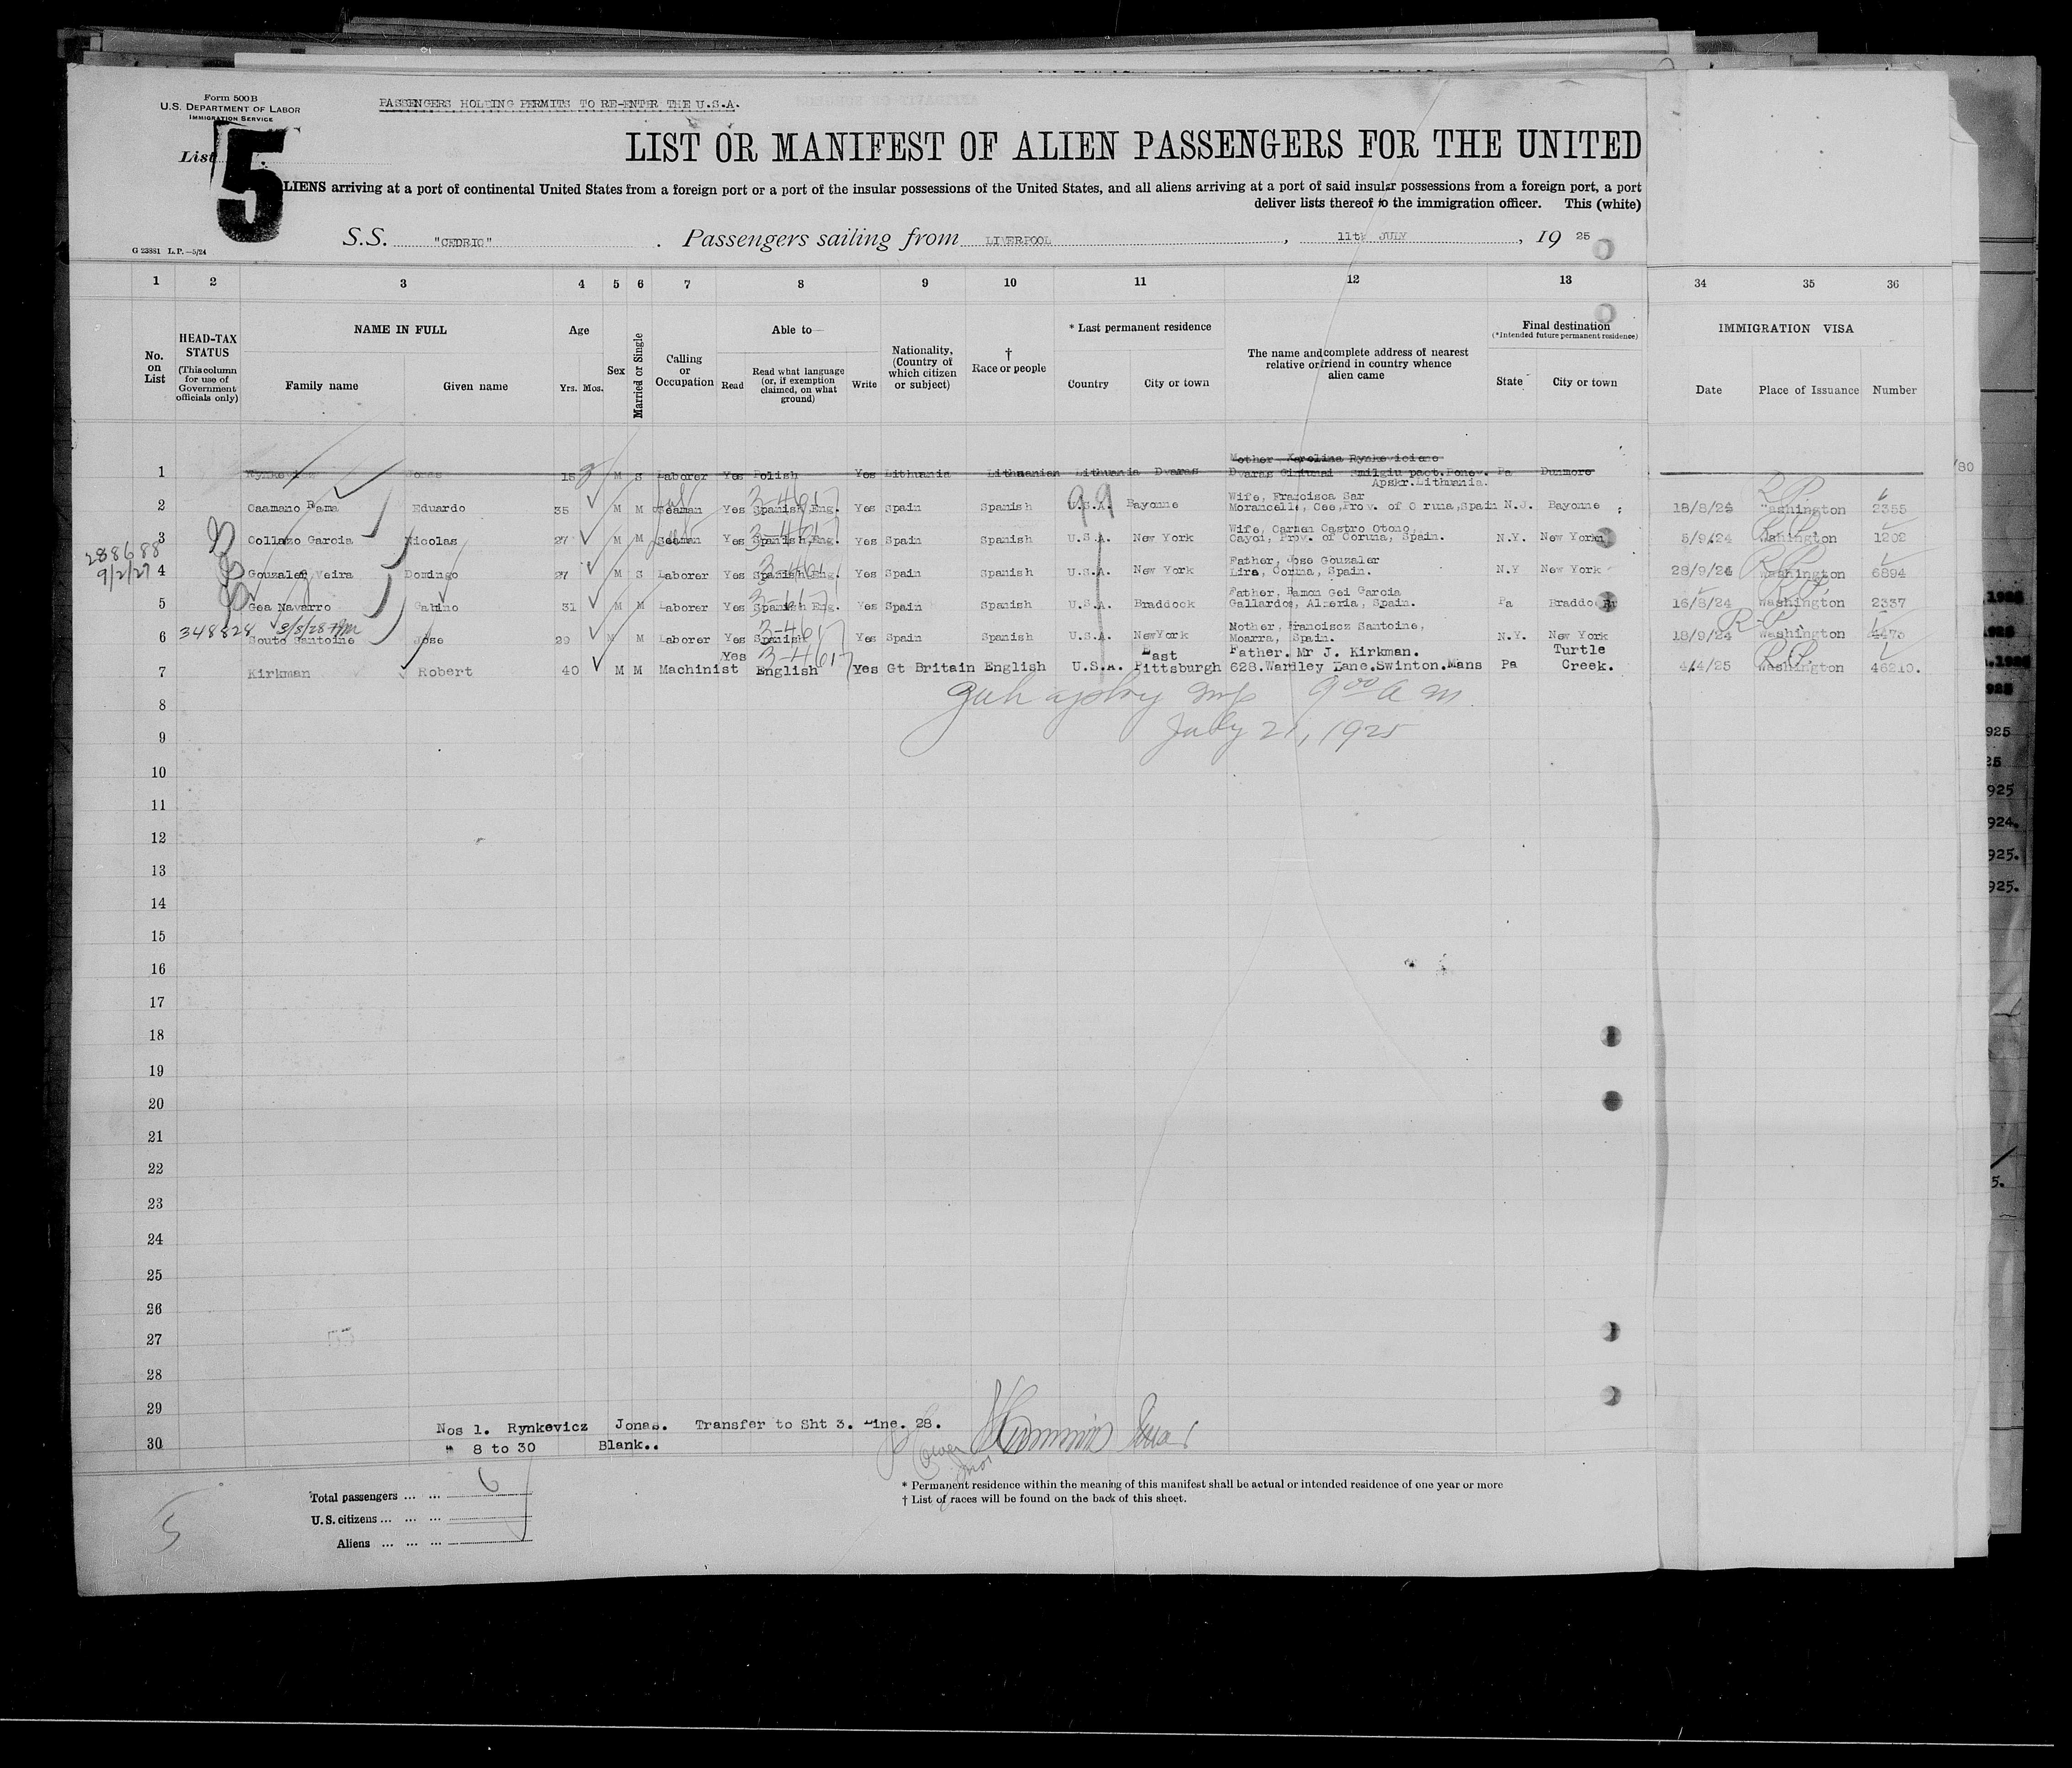 Form 500 B
U.S. DEPARTMENT OF LABOR
IMMIGRATION SERVICE
PASSENGERS HOLDING PERMITS TO RE-ENTER THE U.S.A.
List 5
LIST OR MANIFEST OF ALIEN PASSENGERS FOR THE UNITED
LIENS arriving at a port of continental United States from a foreign port or a port of the insular possessions of the United States, and all aliens arriving at a port of said insular possessions from a foreign port, a port
deliver lists thereof to the immigration officer. This (white)
S.S. "CEDRIC" . Passengers sailing from LIVERPOOL , 11th JULY , 19 25
G 23881 L.P.—5/24
1 2 3 4 5 6 7 8 9 10 11 12 13 34 35 36
No. on List
HEAD-TAX STATUS (This column for use of Government officials only)
NAME IN FULL
Family name Given name
Age Yrs. Mos.
Sex
Married or Single
Calling or Occupation
Able to—
Read Read what language (or, if exemption claimed, on what ground) Write
Nationality. (Country of which citizen or subject)
† Race or people
* Last permanent residence
Country City or town
The name and complete address of nearest relative or friend in country whence alien came
Final destination (*Intended future permanent residence)
State City or town
IMMIGRATION VISA
Date Place of Issuance Number
Mother Karolina Rynkeviciene
1 Jonas 15 M S Laborer Yes Polish Yes Lithuania Lithuanian Lithuania Dvaras Dvaras Smilgiu Ponev. Pa Dunmore
Apskr. Lithuania.
Wife, Francisca Sar
2 Caamano Rama Eduardo 35 M M Seaman Yes Spanish Eng. Yes Spain Spanish U.S.A. Bayonne Cee, Prov. of Spain N.J. Bayonne 18/8/24 Washington 2355
Wife, Carmen Castro Otono
3 Collazo Garcia Nicolas 27 M M Seaman Yes Spanish,Eng. Yes Spain Spanish U.S.A. New York Prov. of Coruna, Spain. N.Y. New York 5/9/24 Washington 1202
288688
Father, Jose Gouzaler
4 Gouzalez Veira Domingo 27 M S Laborer Yes Spanish Eng. Yes Spain Spanish U.S.A. New York Lira, Spain. N.Y New York 28/9/24 Washington 6894
9/2/27
Father, Ramon Gei Garcia
5 Gea Navarro Gabino 31 M M Laborer Yes Spanish Eng. Yes Spain Spanish U.S.A. Braddock Gallardos, Almeria, Spain. Pa 16/8/24 Washington 2337
348828 3/5/28
Mother, Francisoz Santoine,
6 Souto Santoine Jose 29 M M Laborer Yes Spanish Yes Spain Spanish U.S.A. NewYork Moarra, Spain. N.Y. New York 18/9/24 Washington 4473
Yes East Father. Mr J. Kirkman. Turtle
7 Kirkman Robert 40 M M Machinist English Yes Gt Britain English U.S.A. Pittsburgh 628.Wardley Lane.Swinton.Mans Pa Creek. 4/4/25 Washington 46210.
3-4617
8
9 00 A M
9
July 21, 1925
10
11
12
13
14
15
16
17
18
19
20
21
22
23
24
25
26
27
28
29
Nos 1. Rynkevicz Jonas. Transfer to Sht 3. Line. 28.
30
" 8 to 30 Blank..
Total passengers ... ... 6
U. S. citizens ... ... ...
Aliens ... ... ...
5
* Permanent residence within the meaning of this manifest shall be actual or intended residence of one year or more
† List of races will be found on the back of this sheet.